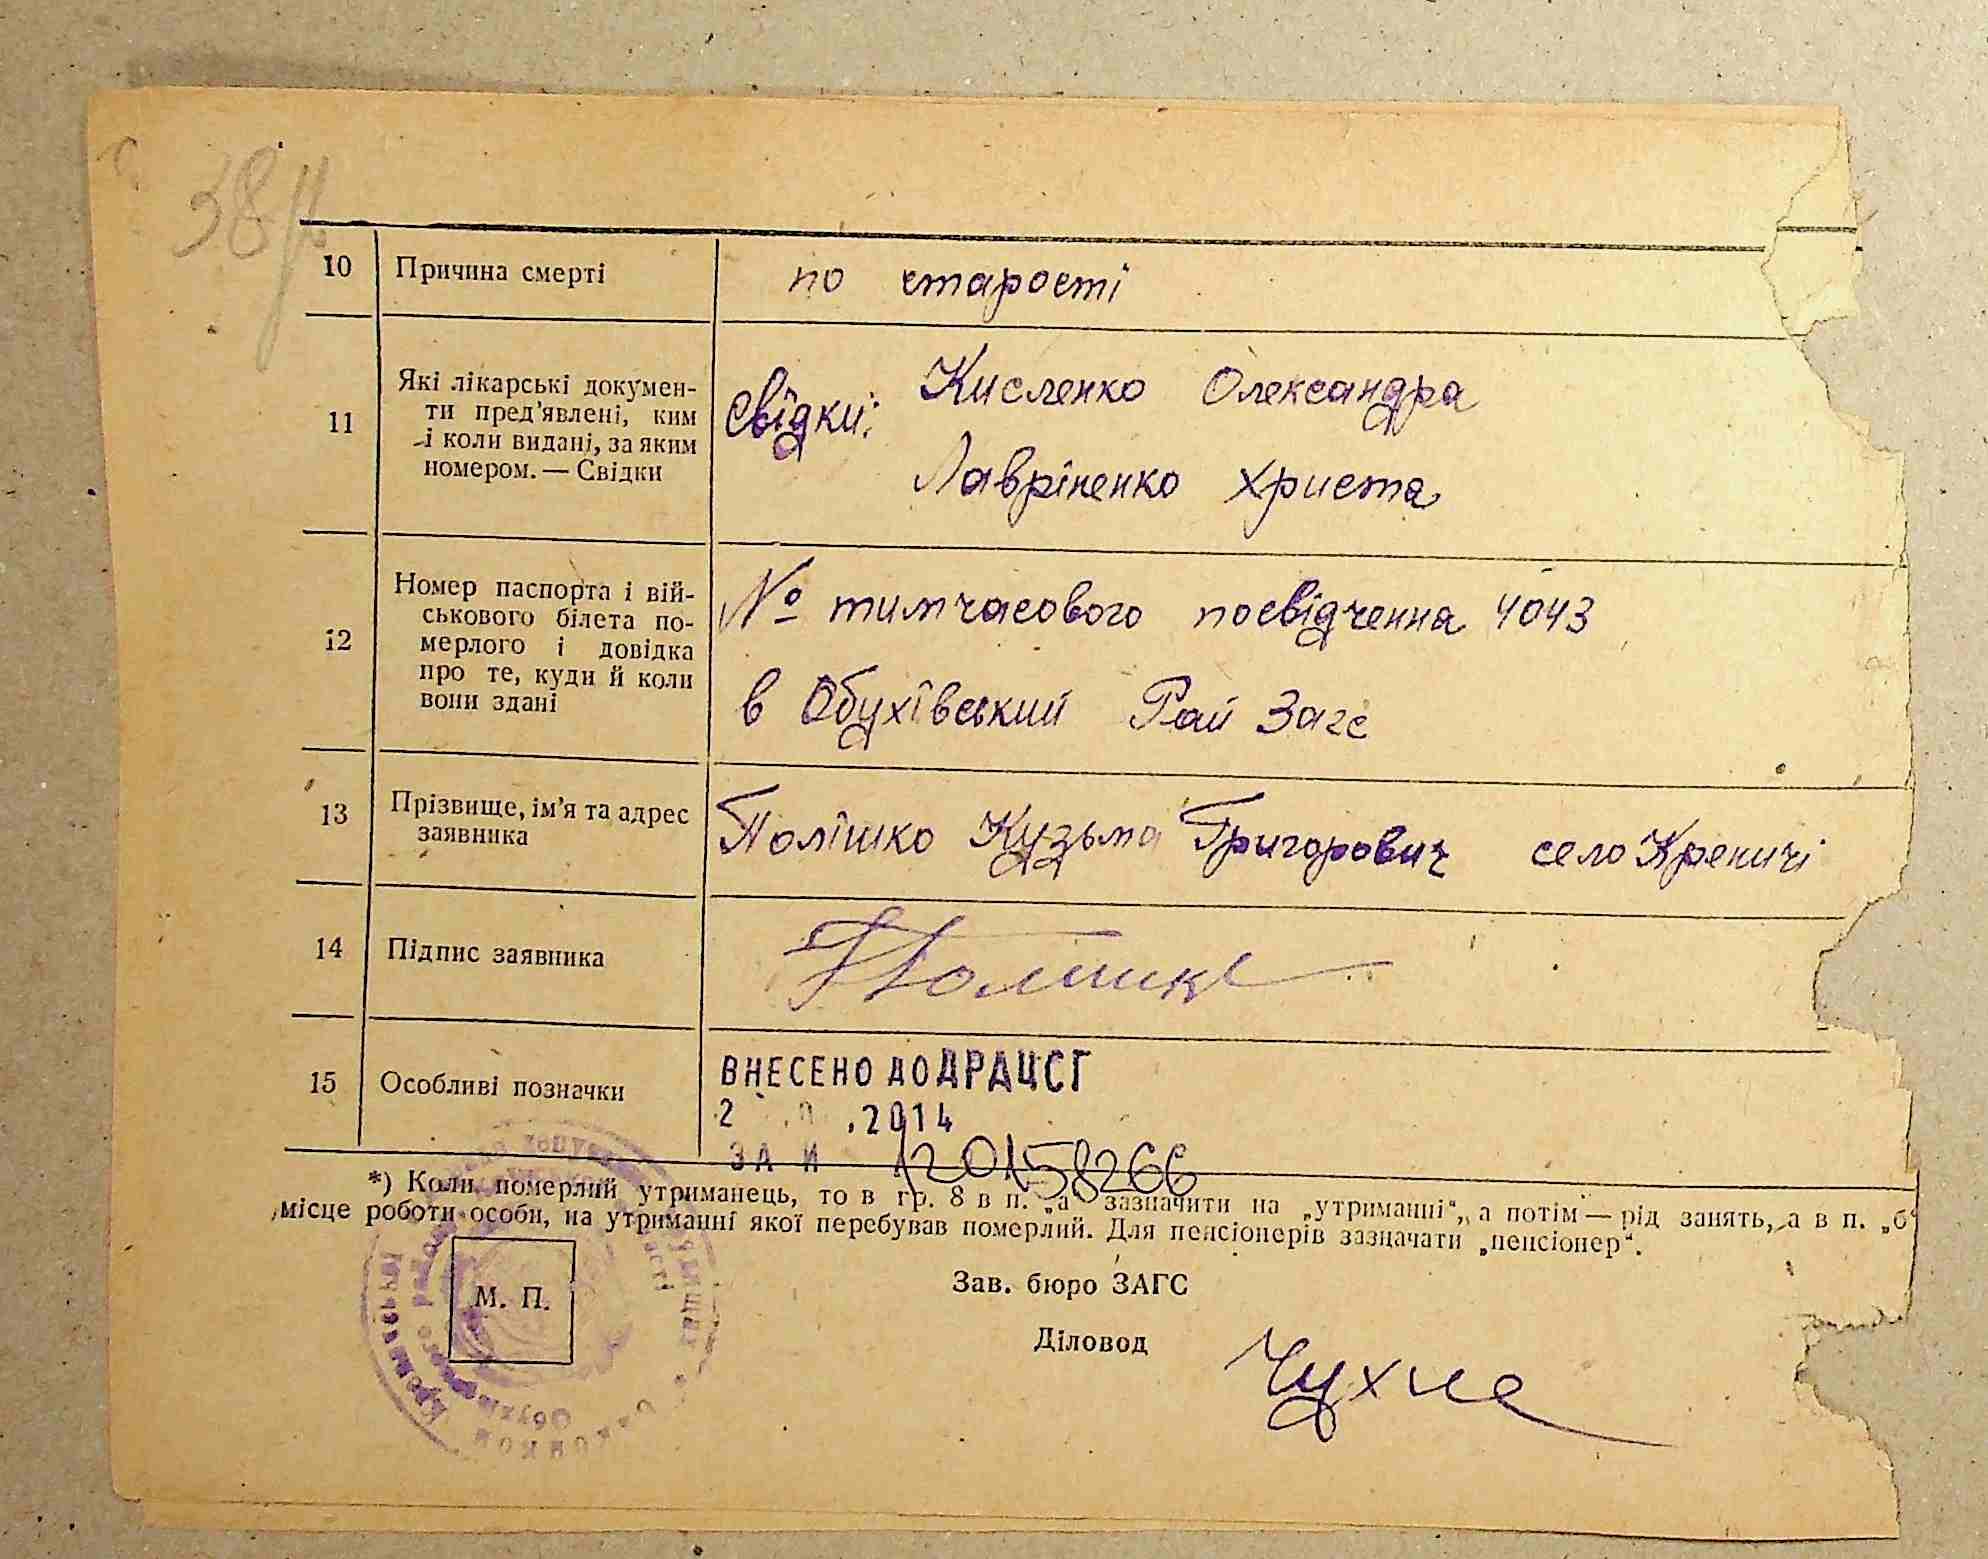 10 Причина смерті по старості
11 Які лікарські докумен-
ти пред'явлені, ким
і коли видані, за яким
номером. — Свідки
Свідки: Кисленко Олександра
Лавріненко Христа
12 Номер паспорта і вій-
ськового білета по-
мерлого і довідка
про те, куди й коли
вони здані
№ тимчасового посвідчення 4043
в Обухівський Рай Загс
13 Прізвище, ім'я та адрес
заявника
Полішко Кузьма Григорович село Креничі
14 Підпис заявника Полішко
15 Особливі позначки
ВНЕСЕНО ДО ДРАЦСГ
2 .2014
ЗА № 120158266
*) Коли померлий утриманець, то в гр. 8 в п. „а" зазначити на „утриманні", а потім — рід занять, а в п. „б"
місце роботи особи, на утриманні якої перебував померлий. Для пенсіонерів зазначати „пенсіонер".
М. П.
Зав. бюро ЗАГС
Діловод Чухне